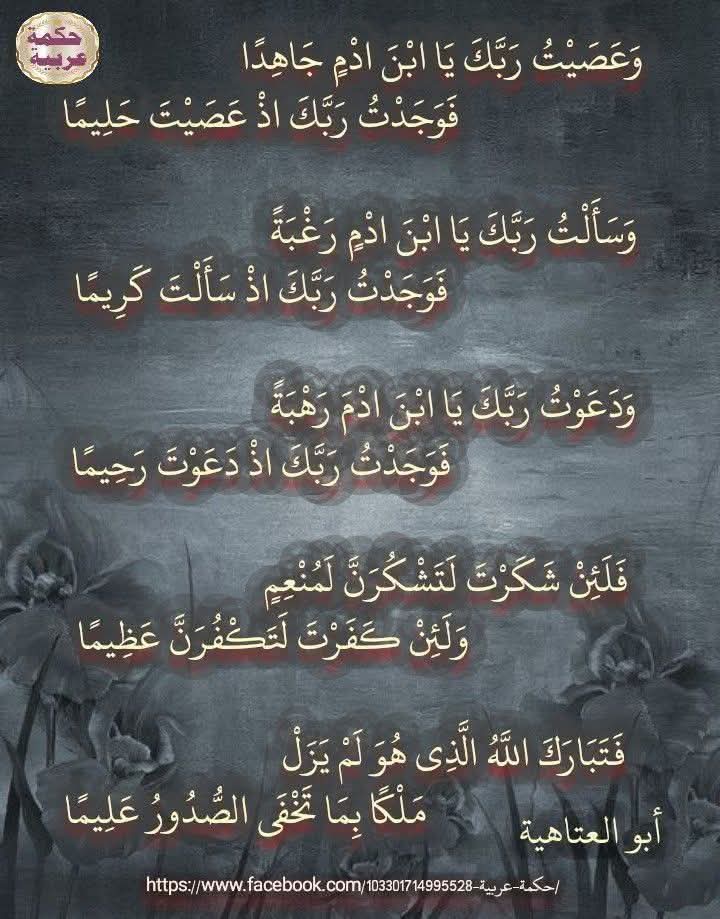 حكمة
عربية
وَعَصَيْتُ رَبَّكَ يَا ابْنَ ادْمٍ جَاهِدًا
فَوَجَدْتُ رَبَّكَ اذْ عَصَيْتَ حَلِيمًا
وَسَأَلْتُ رَبَّكَ يَا ابْنَ ادْمٍ رَغْبَةً
فَوَجَدْتُ رَبَّكَ اذْ سَأَلْتَ كَرِيمًا
وَدَعَوْتُ رَبَّكَ يَا ابْنَ ادْمَ رَهْبَةً
فَوَجَدْتُ رَبَّكَ اذْ دَعَوْتَ رَحِيمًا
فَلَئِنْ شَكَرْتَ لَتَشْكُرَنَّ لَمُنْعِمٍ
وَلَئِنْ كَفَرْتَ لَتَكْفُرَنَّ عَظِيمًا
فَتَبَارَكَ اللَّهُ الَّذِى هُوَ لَمْ يَزَلْ
مَلْكًا بِمَا تَخْفَى الصُّدُورُ عَلِيمًا
أبو العتاهية
https://www.facebook.com/حكمة-عربية-103301714995528/